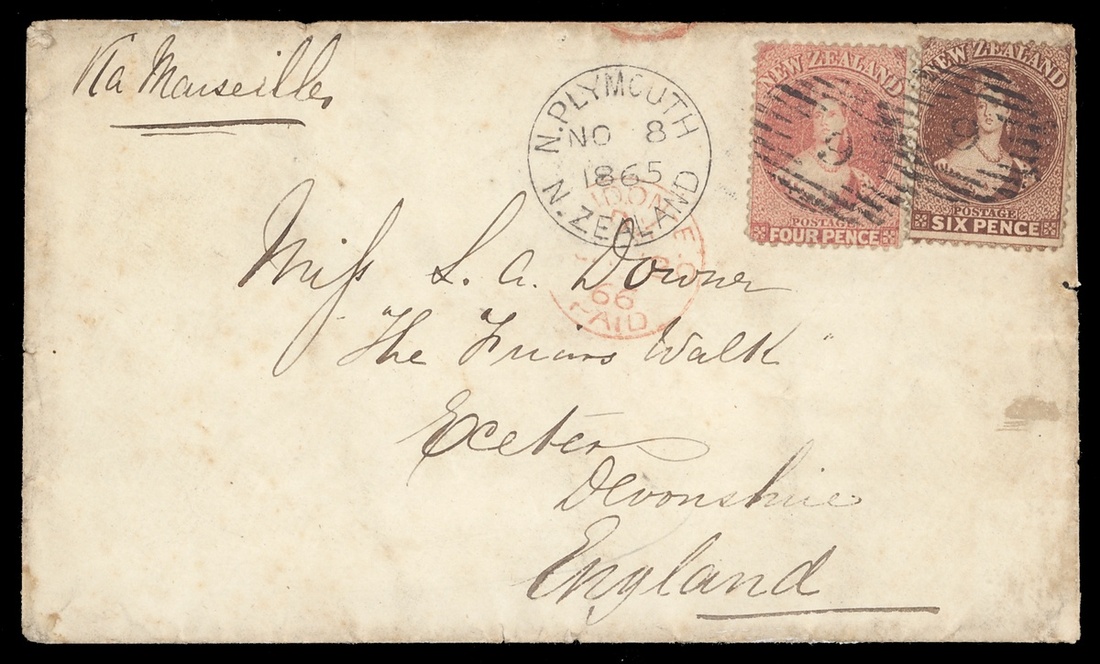 Via Marseilles
N. PLYMOUTH
NO 8
1865
N. ZEALAND
NEW ZEALAND
POSTAGE
FOUR PENCE
NEW ZEALAND
POSTAGE
SIX PENCE
9
9
66
PAID
Miss L. A. Downer
"The Friars Walk"
Exeter
Devonshire
England